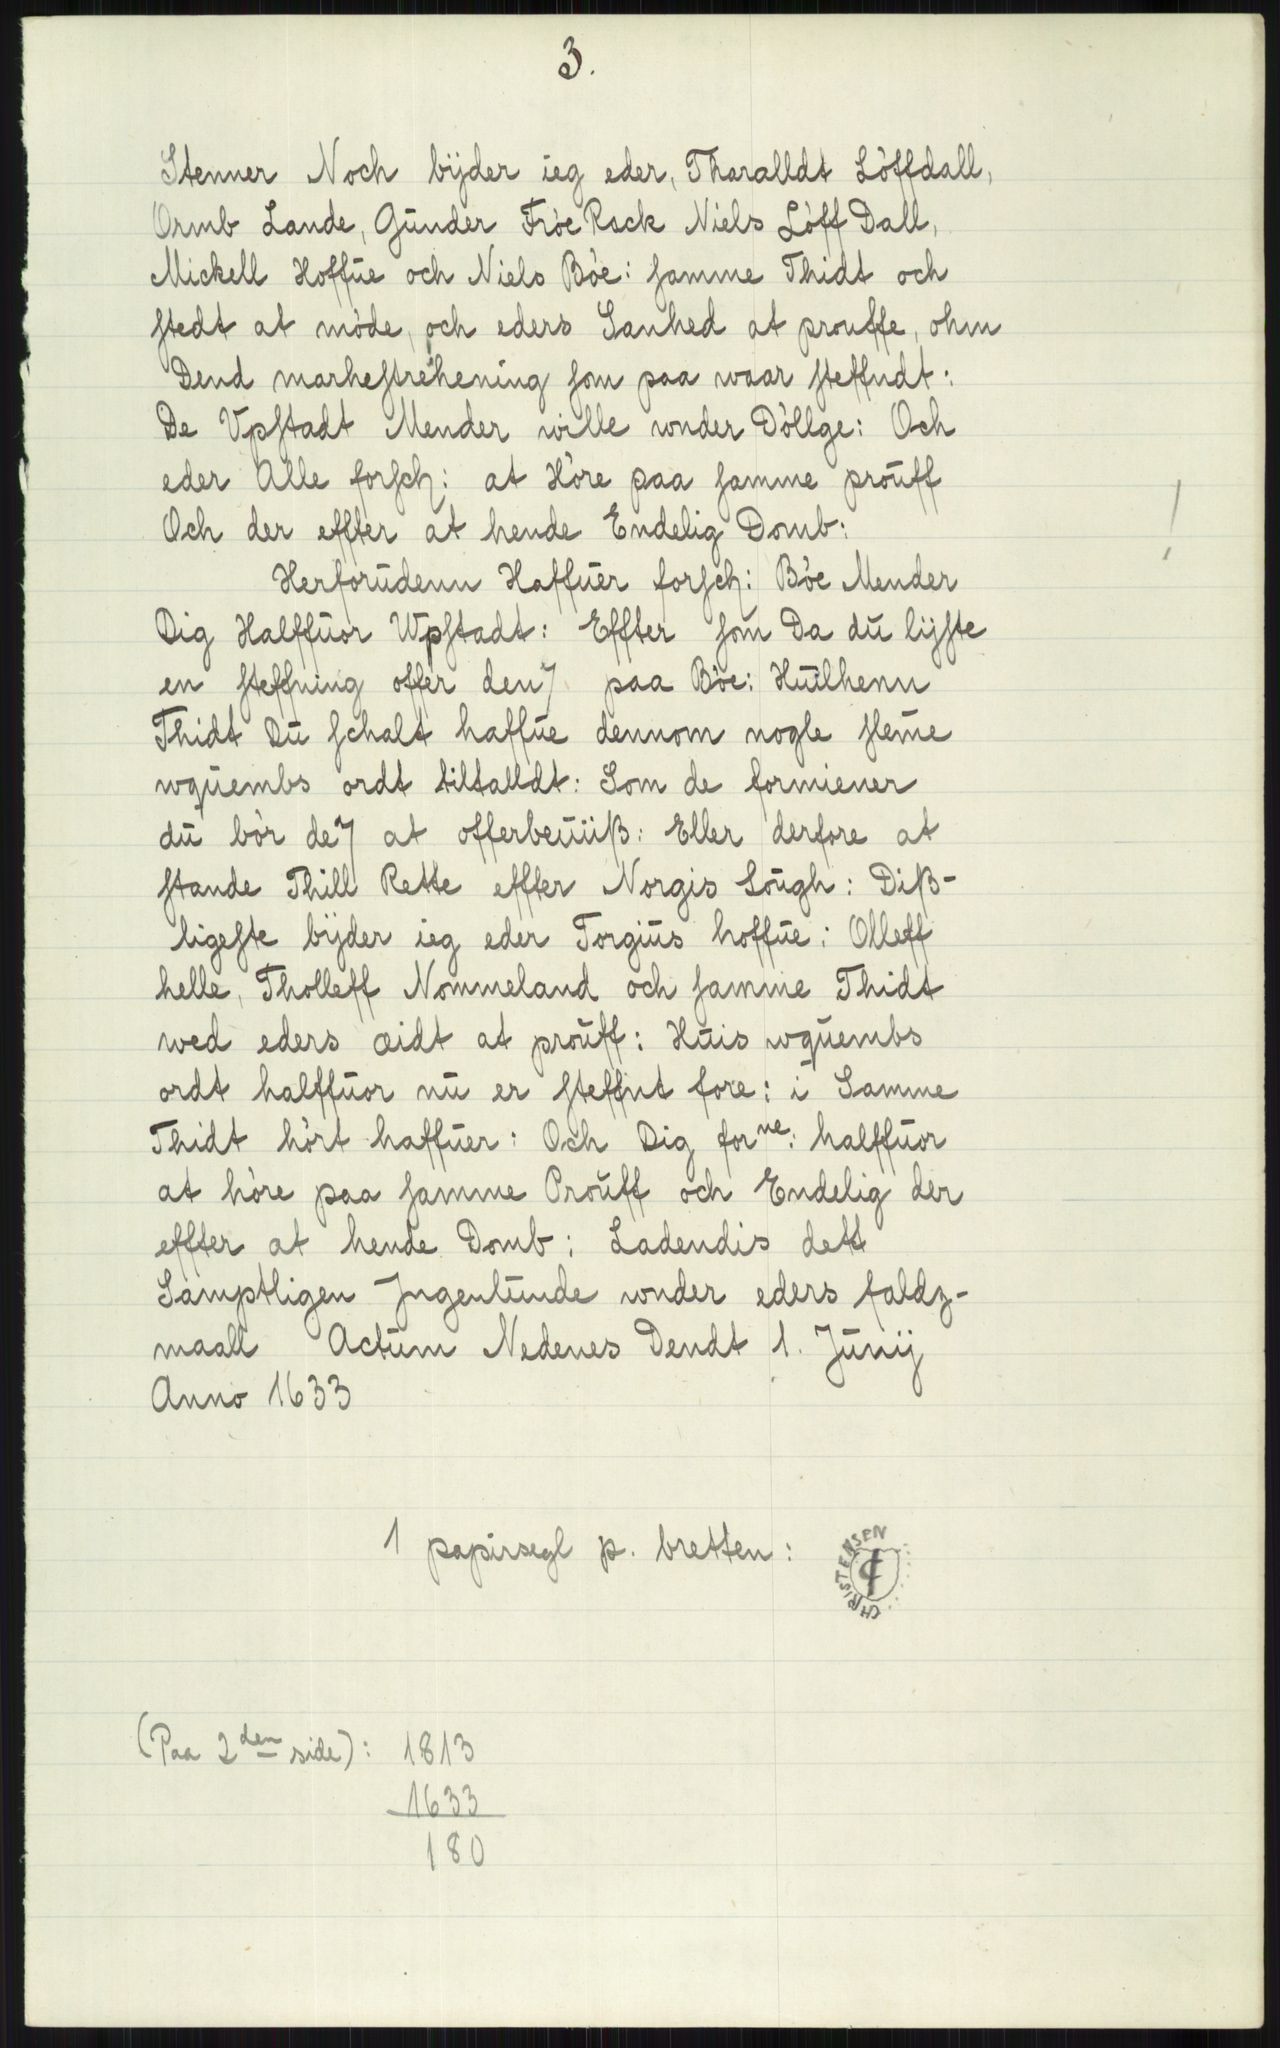 3.
Stenner Noch bijder ieg eder, Tharalldt Löffdall,
Ormb Lande, Gŭnder Fröe Rock Niels Löff Dall,
Mickell Hoffŭe och Niels Böe: samme Thidt och
stedt at möde, och eders Sanhed at prouffe, ohm
Dend marhestrehening som paa waar steffndt:
De Vpstadt Mender wille wnder Döllge: Och
eder Alle forsch: at Höre paa samme proŭff
Och der effter at hende Endelig Domb:
Herforŭdenn Haffŭer forsch: Böe Mender
Dig Halffŭor Wpstadt: Effter som Da dŭ lijste
en steffning offer den paa Böe: Hŭilhenn
Thidt Dŭ schalt haffŭe dennom nogle slemme
wqŭembs ordt tiltalldt: Som de formiener
dŭ bör de at offerbeŭiiß: Eller derfore at
stande Thill Rette effter Norgis Loŭgh: Diß-
ligeste bijder ieg eder Torgiŭs hoffŭe: Olleff
helle, Tholleff Nommeland och samme Thidt
wed eders æidt at proŭff: Hŭis wqŭembs
ordt halffŭor nŭ er steffnt fore: i Samme
Thidt hört haffŭer: Och Dig forne: halffŭor
at höre paa samme Proŭff och Endelig der
effter at hende Domb: Ladendis dett
Samptligen Jngenlŭnde wnder eders faldz-
maall Actŭm Nedenes Dendt 1. Jŭnij
Anno 1633
1 papirsegl p. bretten:
CHRISTENSEN
(Paa 2den side): 1813
1633
180